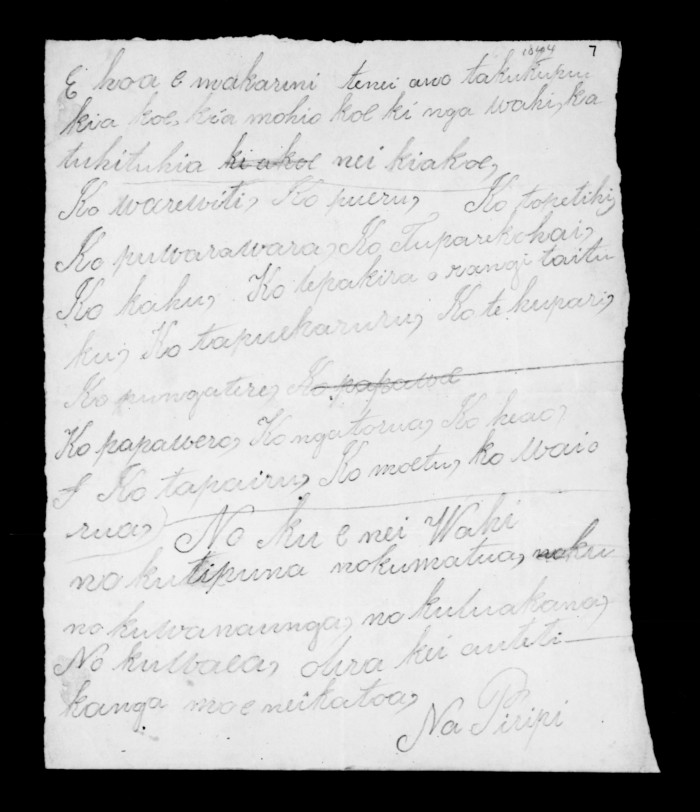 1844 7
E hoa e makarini tenei ano takukupu
kia koe, kia mohio koe ki nga wahi, ka
tuhituhia ki a koe nei kiakoe,
Ko warewiti, Ko pueru, Ko topetihi,
Ko puwarawara, Ko Tuparekohai,
Ko kahu, Ko tepakira o rangi taitu
ku, Ko tapuekaruru, Ko te kupari,
Ko pungatere, Ko papawe
Ko papawero, Ko ngatorua, Ko heao,
Ko tapairu, Ko moetu, ko waio
rua,
No ku e nei Wahi
no kutipuna nokumatua, noku
no kuwanaunga, no kutuakana,
No kuwaea, otira kei auteti
kanga mo e neikatoa,
Na Piripi